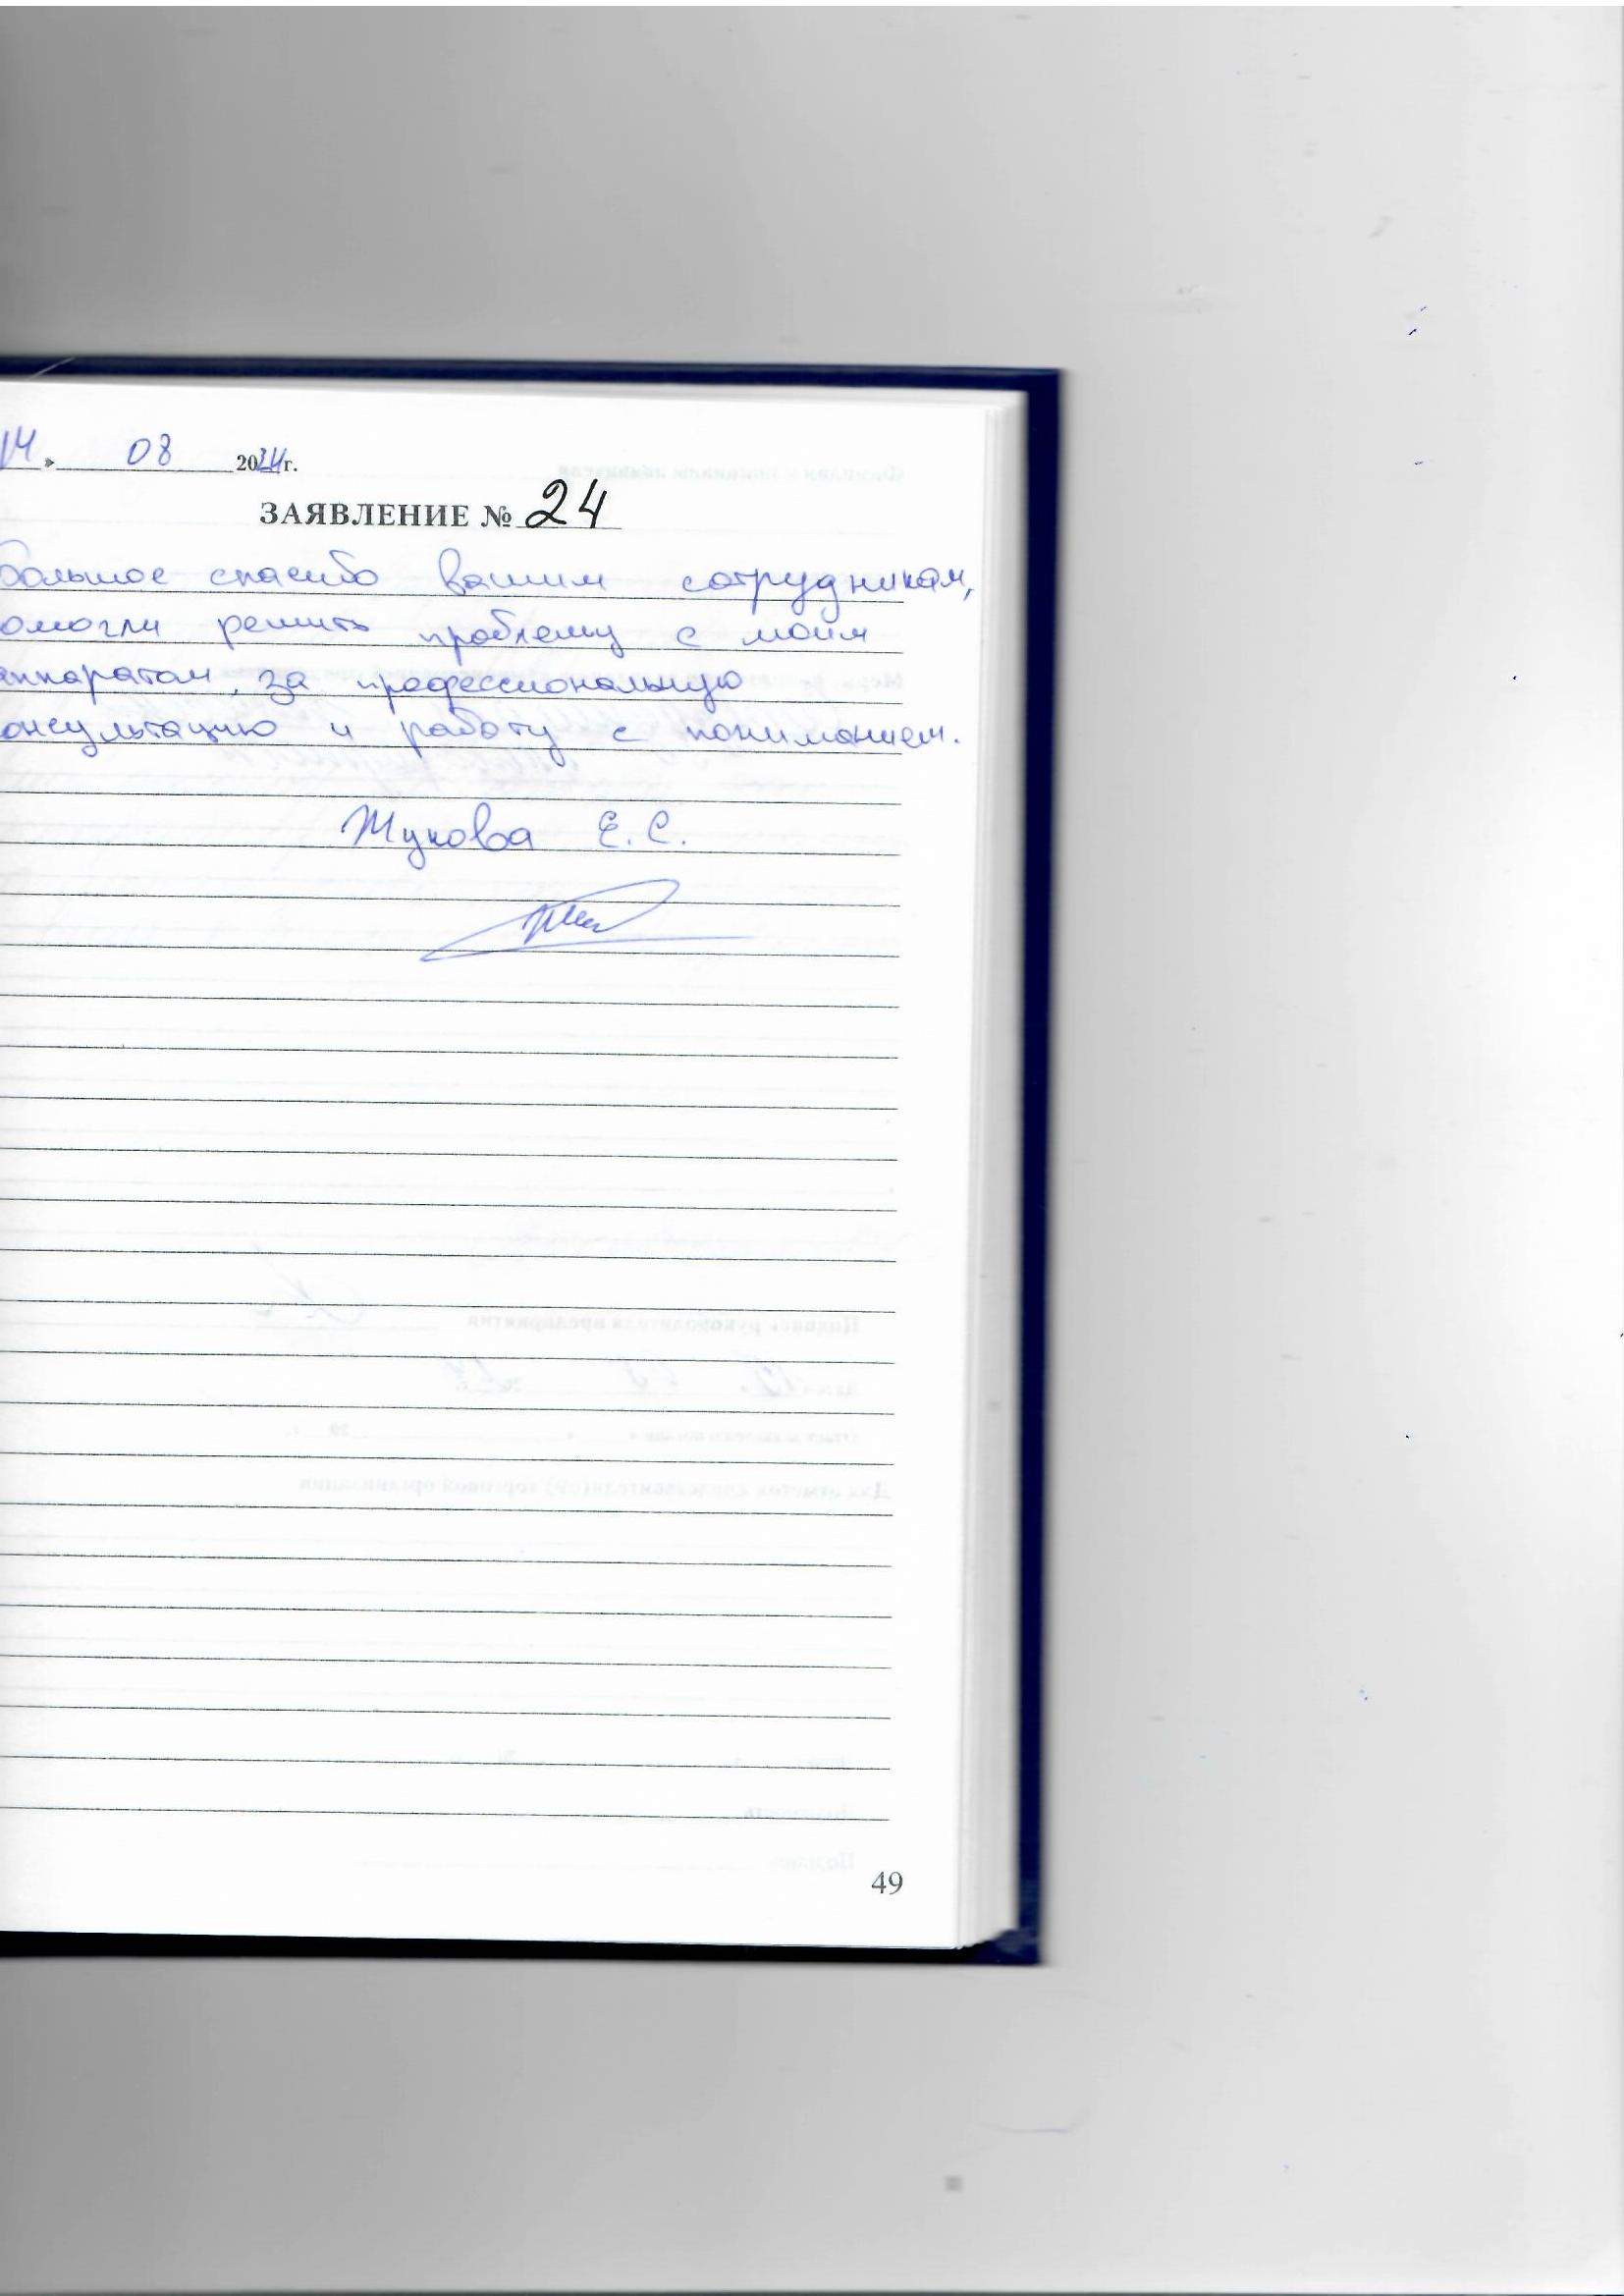 14 » 08 2024 г.
ЗАЯВЛЕНИЕ № 24
большое спасибо вашим сотрудникам,
омогли решить проблему с моим
аппаратом, за профессиональную
онсультацию и работу с пониманием.
Жукова Е.С.
49